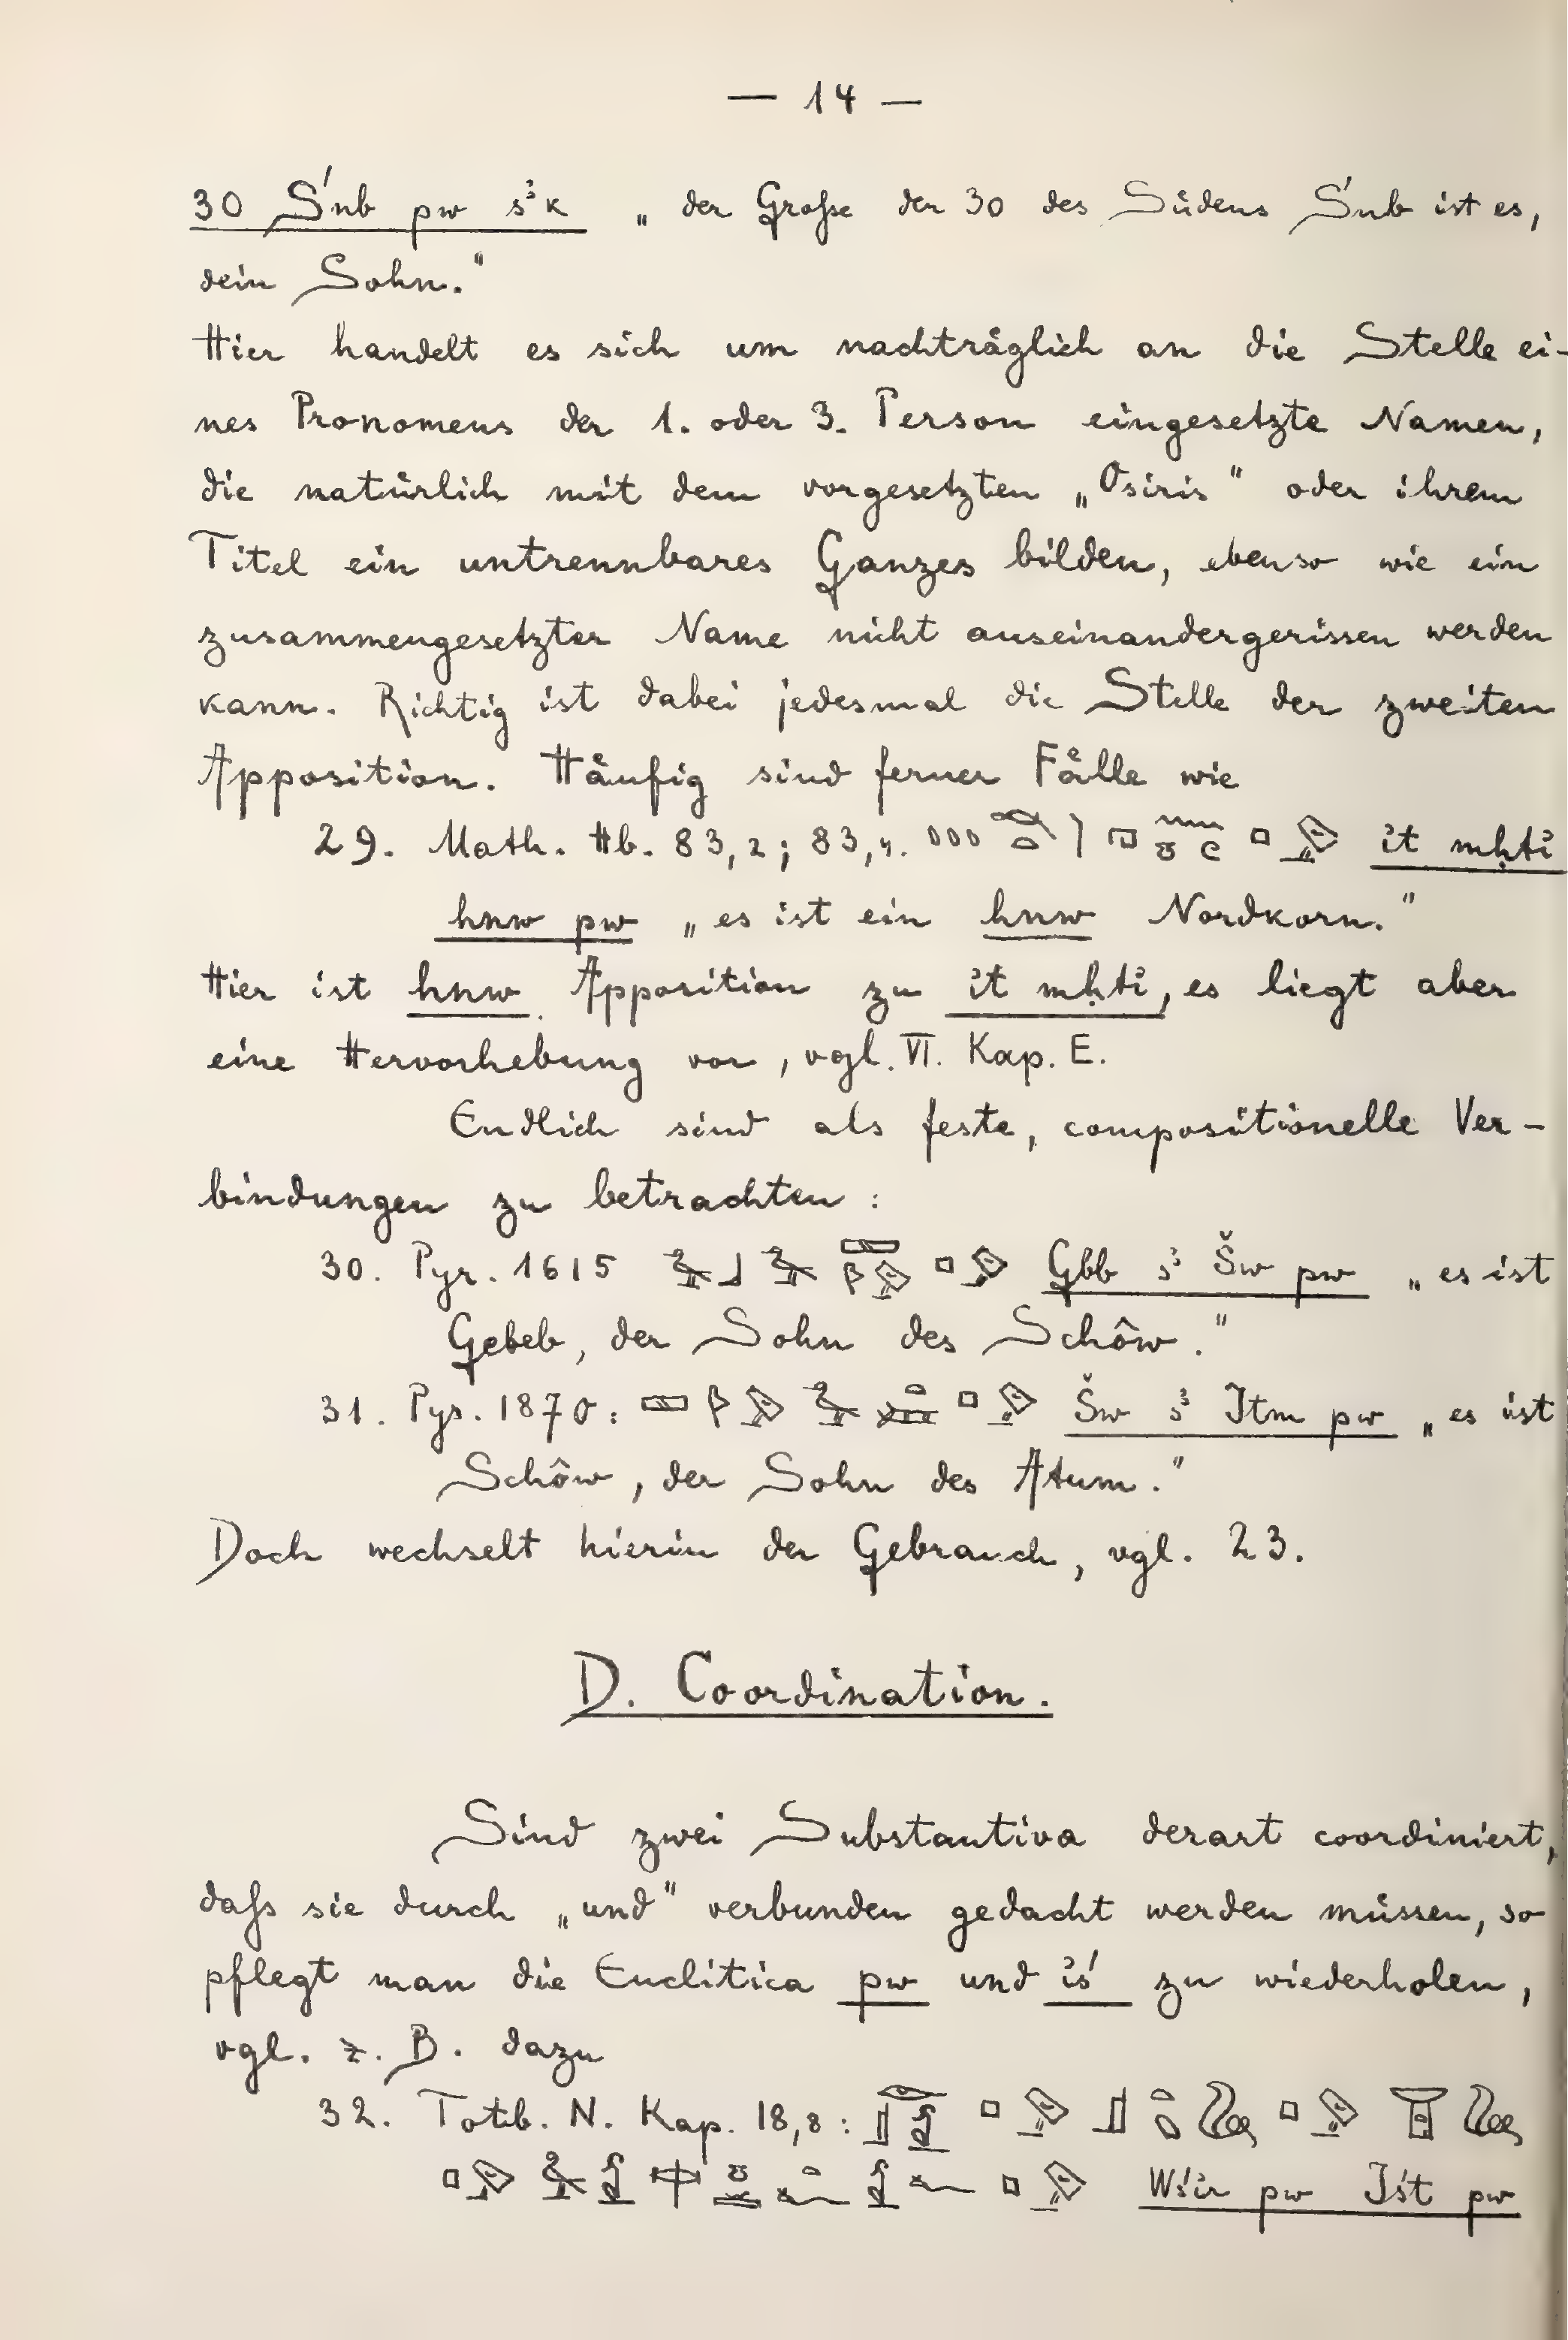 — 14 —
30 Śnb pw sꜣk „der Große der 30 des Südens Śnb ist es,
dein Sohn."
Hier handelt es sich um nachträglich an die Stelle ei-
nes Pronomens der 1. oder 3. Person eingesetzte Namen,
die natürlich mit dem vorgesetzten „Osiris" oder ihrem
Titel ein untrennbares Ganzes bilden, ebenso wie ein
zusammengesetzter Name nicht auseinandergerissen werden
kann. Richtig ist dabei jedesmal die Stelle der zweiten
Apposition. Häufig sind ferner Fälle wie
29. Math. Hb. 83,2; 83,4. it mḥti
hnw pw „es ist ein hnw Nordkorn."
Hier ist hnw Apposition zu it mḥti, es liegt aber
eine Hervorhebung vor, vgl. VI. Kap. E.
Endlich sind als feste, compositionelle Ver-
bindungen zu betrachten:
30. Pyr. 1615 Gbb sꜣ Šw pw „es ist
Gebeb, der Sohn des Schôw."
31. Pyr. 1870: Šw sꜣ Jtm pw „es ist
Schôw, der Sohn des Atum."
Doch wechselt hierin der Gebrauch, vgl. 23.
D. Coordination.
Sind zwei Substantiva derart coordiniert,
daß sie durch „und" verbunden gedacht werden müssen, so
pflegt man die Enclitica pw und iś zu wiederholen,
vgl. z. B. dazu
32. Totb. N. Kap. 18,8:
Wśir pw Jśt pw